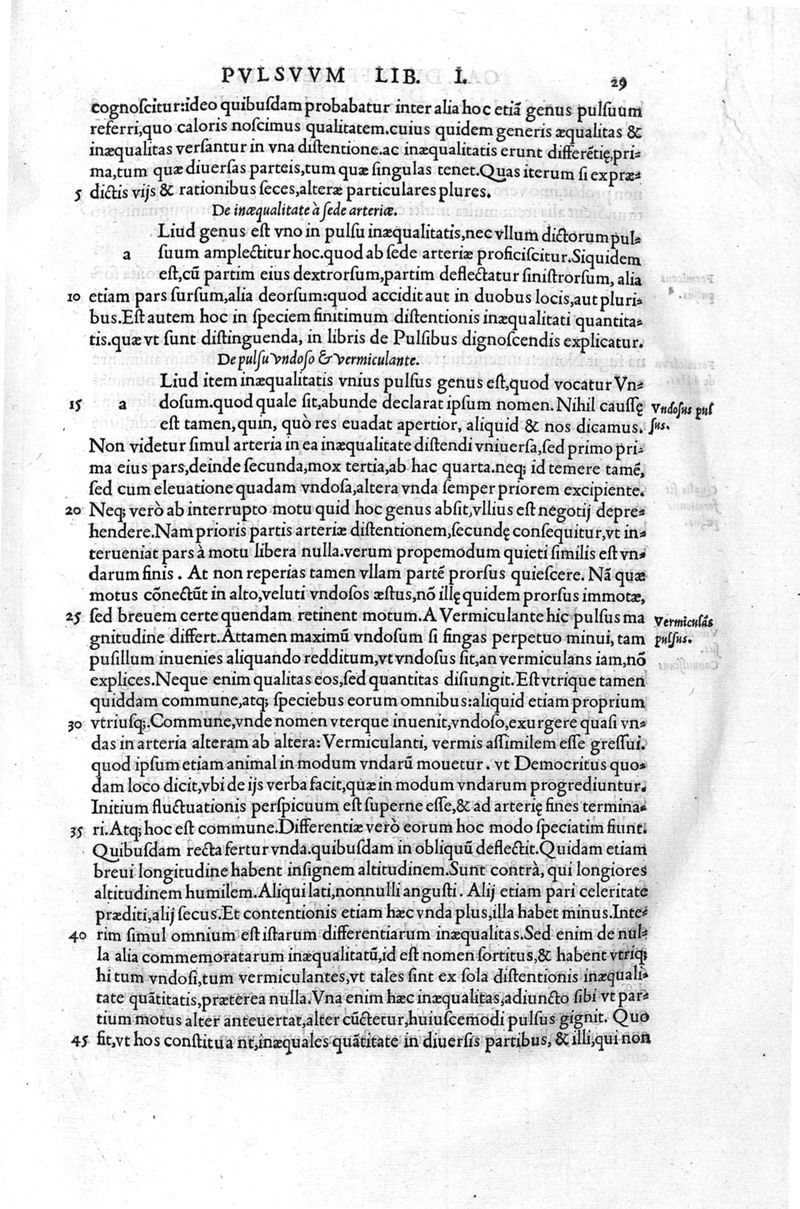 PVLSVVM LIB. I. 29
cognoſcitur:ideo quibuſdam probabatur inter alia hoc etiã genus pulſuum
referri,quo caloris noſcimus qualitatem.cuius quidem generis æqualitas &
inæqualitas verſantur in vna diſtentione.ac inæqualitatis erunt differẽtię,pri-
ma,tum quæ diuerſas parteis,tum quæ ſingulas tenet.Quas iterum ſi ex præ-
5 dictis vijs & rationibus ſeces,alteræ particulares plures.
De inæqualitate à ſede arteriæ.
a Liud genus eſt vno in pulſu inæqualitatis,nec vllum dictorum pul-
ſuum amplectitur hoc.quod ab ſede arteriæ proficiſcitur.Siquidem
eſt,cũ partim eius dextrorſum,partim deflectatur ſiniſtrorſum, alia
10 etiam pars ſurſum,alia deorſum:quod accidit aut in duobus locis,aut pluri-
bus.Eſt autem hoc in ſpeciem finitimum diſtentionis inæqualitati quantita-
tis.quæ vt ſunt diſtinguenda, in libris de Pulſibus dignoſcendis explicatur.
De pulſu vndoſo & vermiculante.
a Liud item inæqualitatis vnius pulſus genus eſt,quod vocatur Vn-
15 doſum.quod quale ſit,abunde declarat ipſum nomen. Nihil cauſſę
eſt tamen,quin, quò res euadat apertior, aliquid & nos dicamus.
Vndoſus pul
ſus.
Non videtur ſimul arteria in ea inæqualitate diſtendi vniuerſa,ſed primo pri-
ma eius pars,deinde ſecunda,mox tertia,ab hac quarta.neq; id temere tamẽ,
ſed cum eleuatione quadam vndoſa,altera vnda ſemper priorem excipiente.
20 Neq; verò ab interrupto motu quid hoc genus abſit,vllius eſt negotij depre-
hendere.Nam prioris partis arteriæ diſtentionem,ſecundę conſequitur,vt in-
terueniat pars à motu libera nulla.verum propemodum quieti ſimilis eſt vn-
darum finis . At non reperias tamen vllam partẽ prorſus quieſcere. Nã quæ
motus cõnectũt in alto,veluti vndoſos æſtus,nõ illę quidem prorſus immotæ,
25 ſed breuem certe quendam retinent motum.A Vermiculante hic pulſus ma
gnitudine differt.Attamen maximũ vndoſum ſi fingas perpetuo minui, tam
Vermiculãs
pulſus.
puſillum inuenies aliquando redditum,vt vndoſus ſit,an vermiculans iam,nõ
explices.Neque enim qualitas eos,ſed quantitas diſiungit.Eſt vtrique tamen
quiddam commune,atq; ſpeciebus eorum omnibus:aliquid etiam proprium
30 vtriuſq;.Commune,vnde nomen vterque inuenit,vndoſo,exurgere quaſi vn-
das in arteria alteram ab altera: Vermiculanti, vermis aſſimilem eſſe greſſui.
quod ipſum etiam animal in modum vndarũ mouetur . vt Democritus quo-
dam loco dicit,vbi de ijs verba facit,quæ in modum vndarum progrediuntur.
Initium fluctuationis perſpicuum eſt ſuperne eſſe,& ad arterię fines termina-
35 ri.Atq; hoc eſt commune.Differentiæ verò eorum hoc modo ſpeciatim fiunt.
Quibuſdam recta fertur vnda.quibuſdam in obliquũ deflectit.Quidam etiam
breui longitudine habent inſignem altitudinem.Sunt contrà, qui longiores
altitudinem humilem.Aliqui lati,nonnulli anguſti . Alij etiam pari celeritate
præditi,alij ſecus.Et contentionis etiam hæc vnda plus,illa habet minus.Inte-
40 rim ſimul omnium eſt iſtarum differentiarum inæqualitas.Sed enim de nul-
la alia commemoratarum inæqualitatũ,id eſt nomen ſortitus,& habent vtriq;
hi tum vndoſi,tum vermiculantes,vt tales ſint ex ſola diſtentionis inæquali-
tate quãtitatis,præterea nulla.Vna enim hæc inæqualitas,adiuncto ſibi vt par-
tium motus alter anteuertat,alter cũctetur,huiuſcemodi pulſus gignit. Quo
45 fit,vt hos conſtitua nt,inæquales quãtitate in diuerſis partibus, & illi,qui non